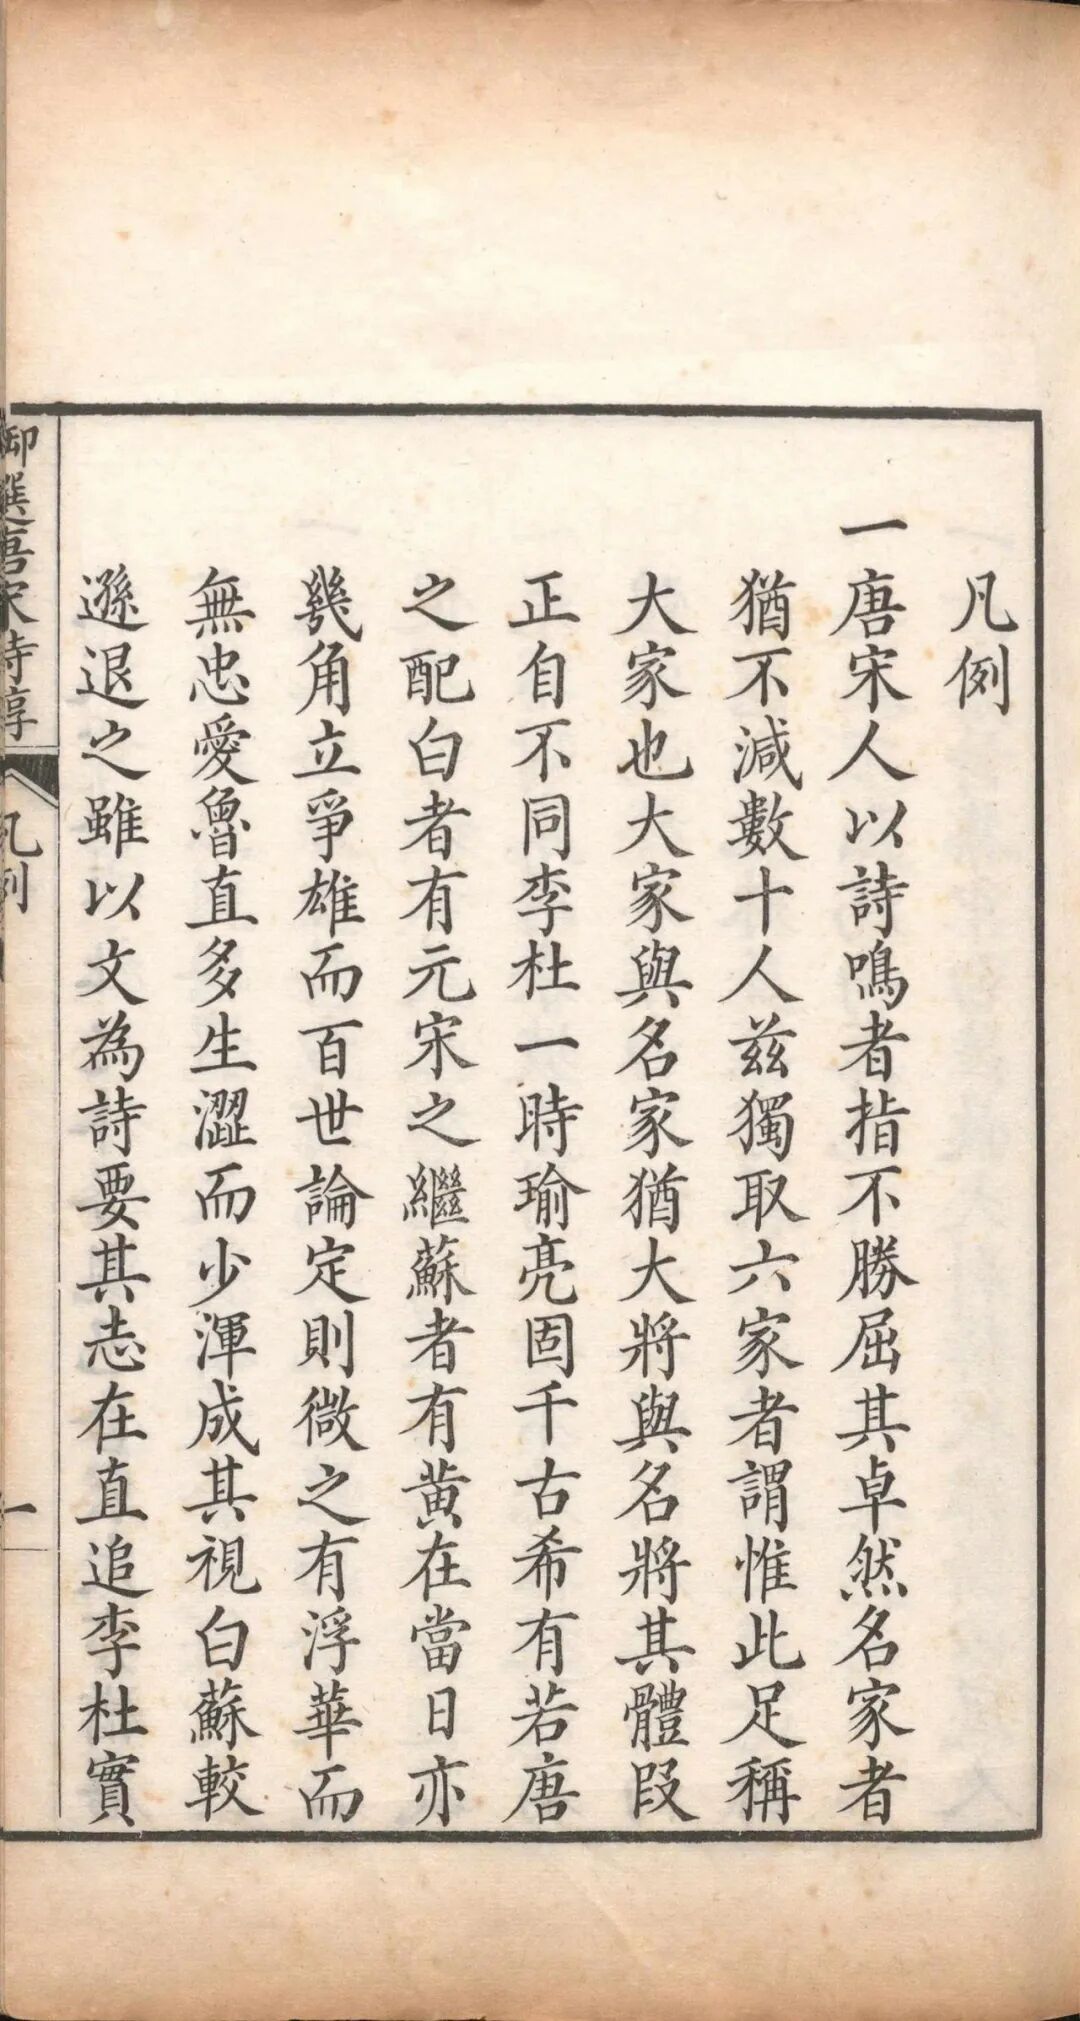 凡例
一唐宋人以詩鳴者指不勝屈其卓然名家者
猶不減數十人兹獨取六家者謂惟此足稱
大家也大家與名家猶大將與名將其體段
正自不同李杜一時瑜亮固千古希有若唐
之配白者有元宋之繼蘇者有黄在當日亦
幾角立爭雄而百世論定則微之有浮華而
無忠愛魯直多生澀而少渾成其視白蘇較
遜退之雖以文為詩要其志在直追李杜實
御選唐宋詩醇
凡例
一